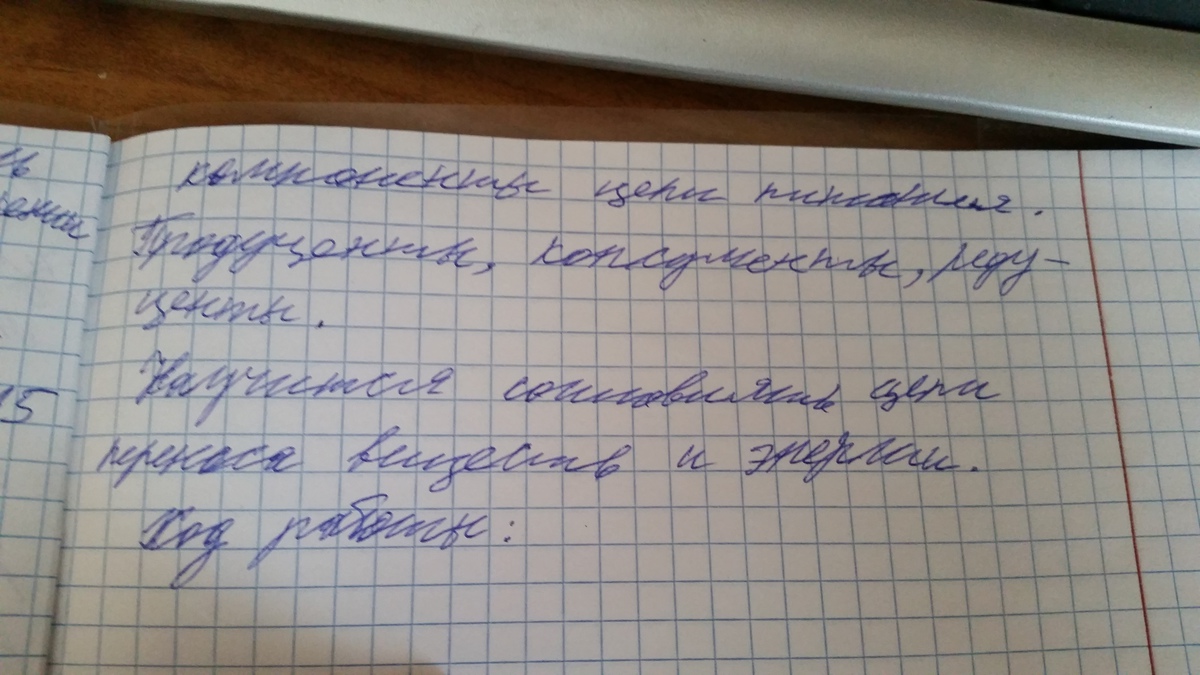 компоненты цепи питания.
Продуценты, консументы, реду-
центы.
Научится составлять цепи
переноса веществ и энергии.
Ход работы:
15